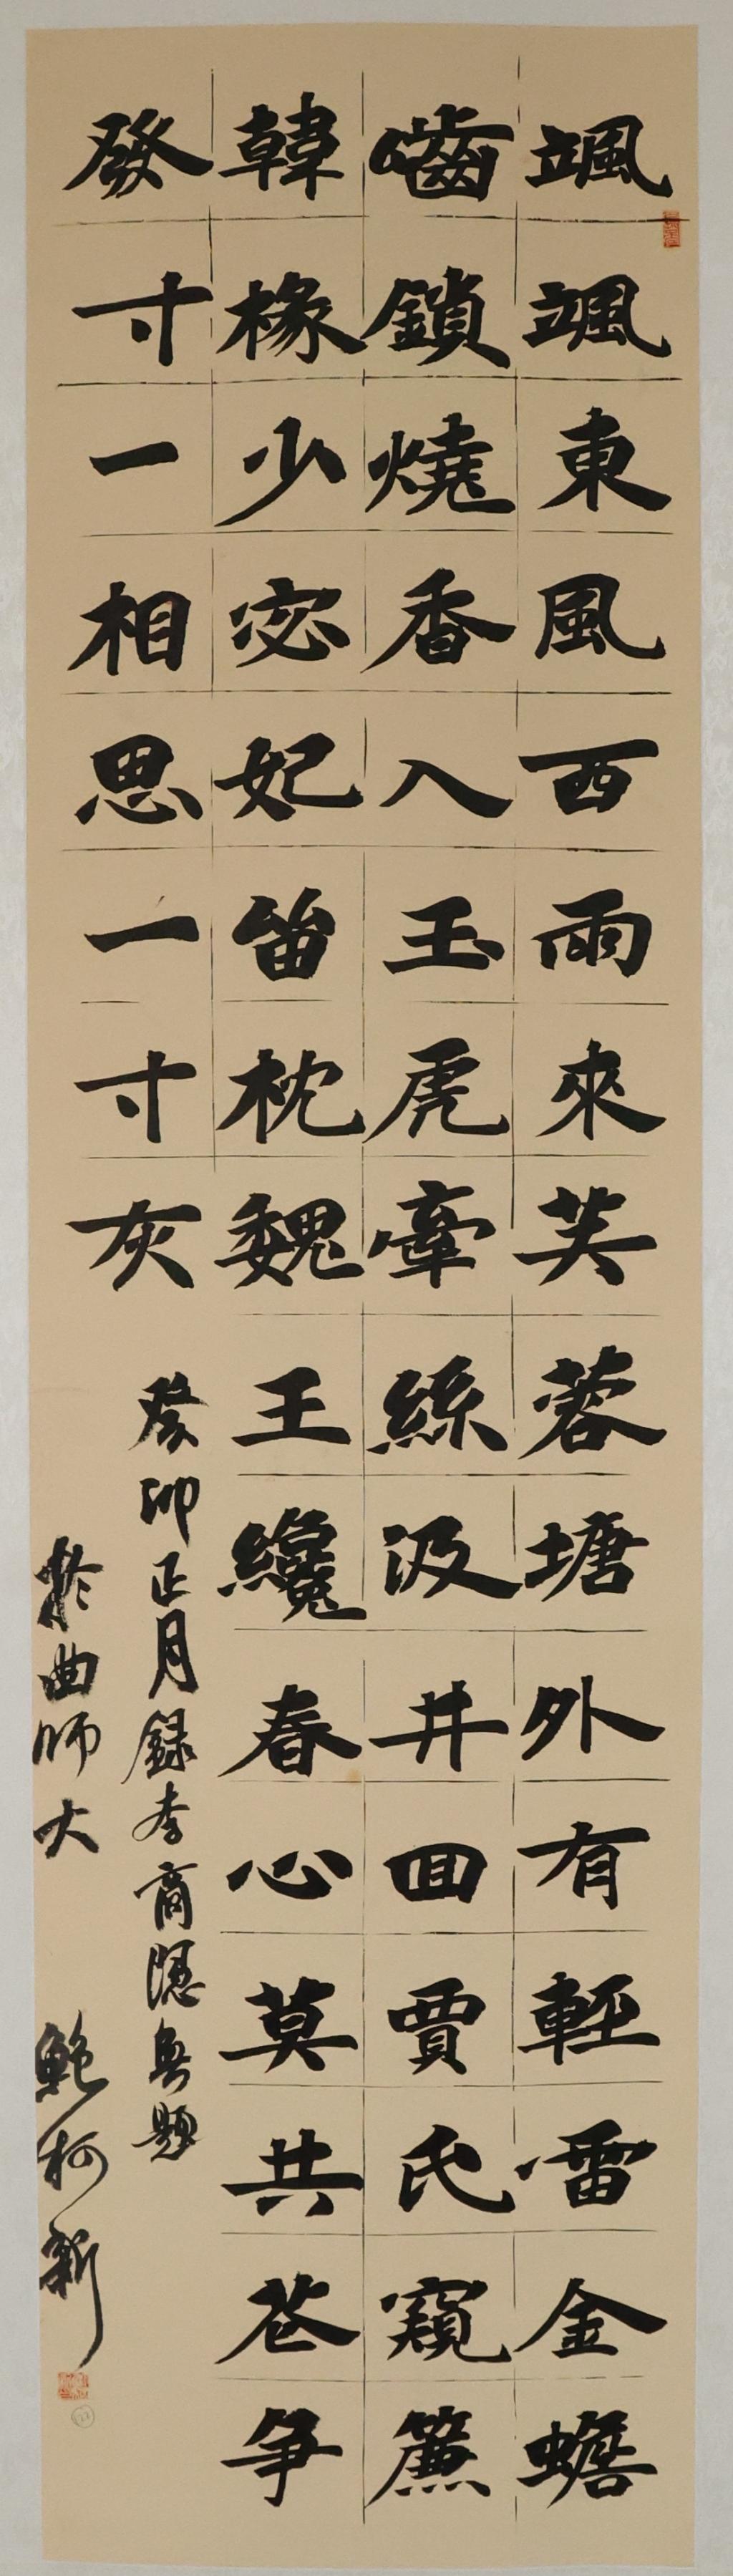 颯颯東風西雨來芙蓉塘外有輕雷金蟾
嚙鎖燒香入玉虎牽絲汲井囬賈氏窺簾
韓椽少宓妃留枕魏王纔春心莫共花争
發寸一相思一寸灰
癸卯正月録李商隱無題
於曲師大 鮑柯新